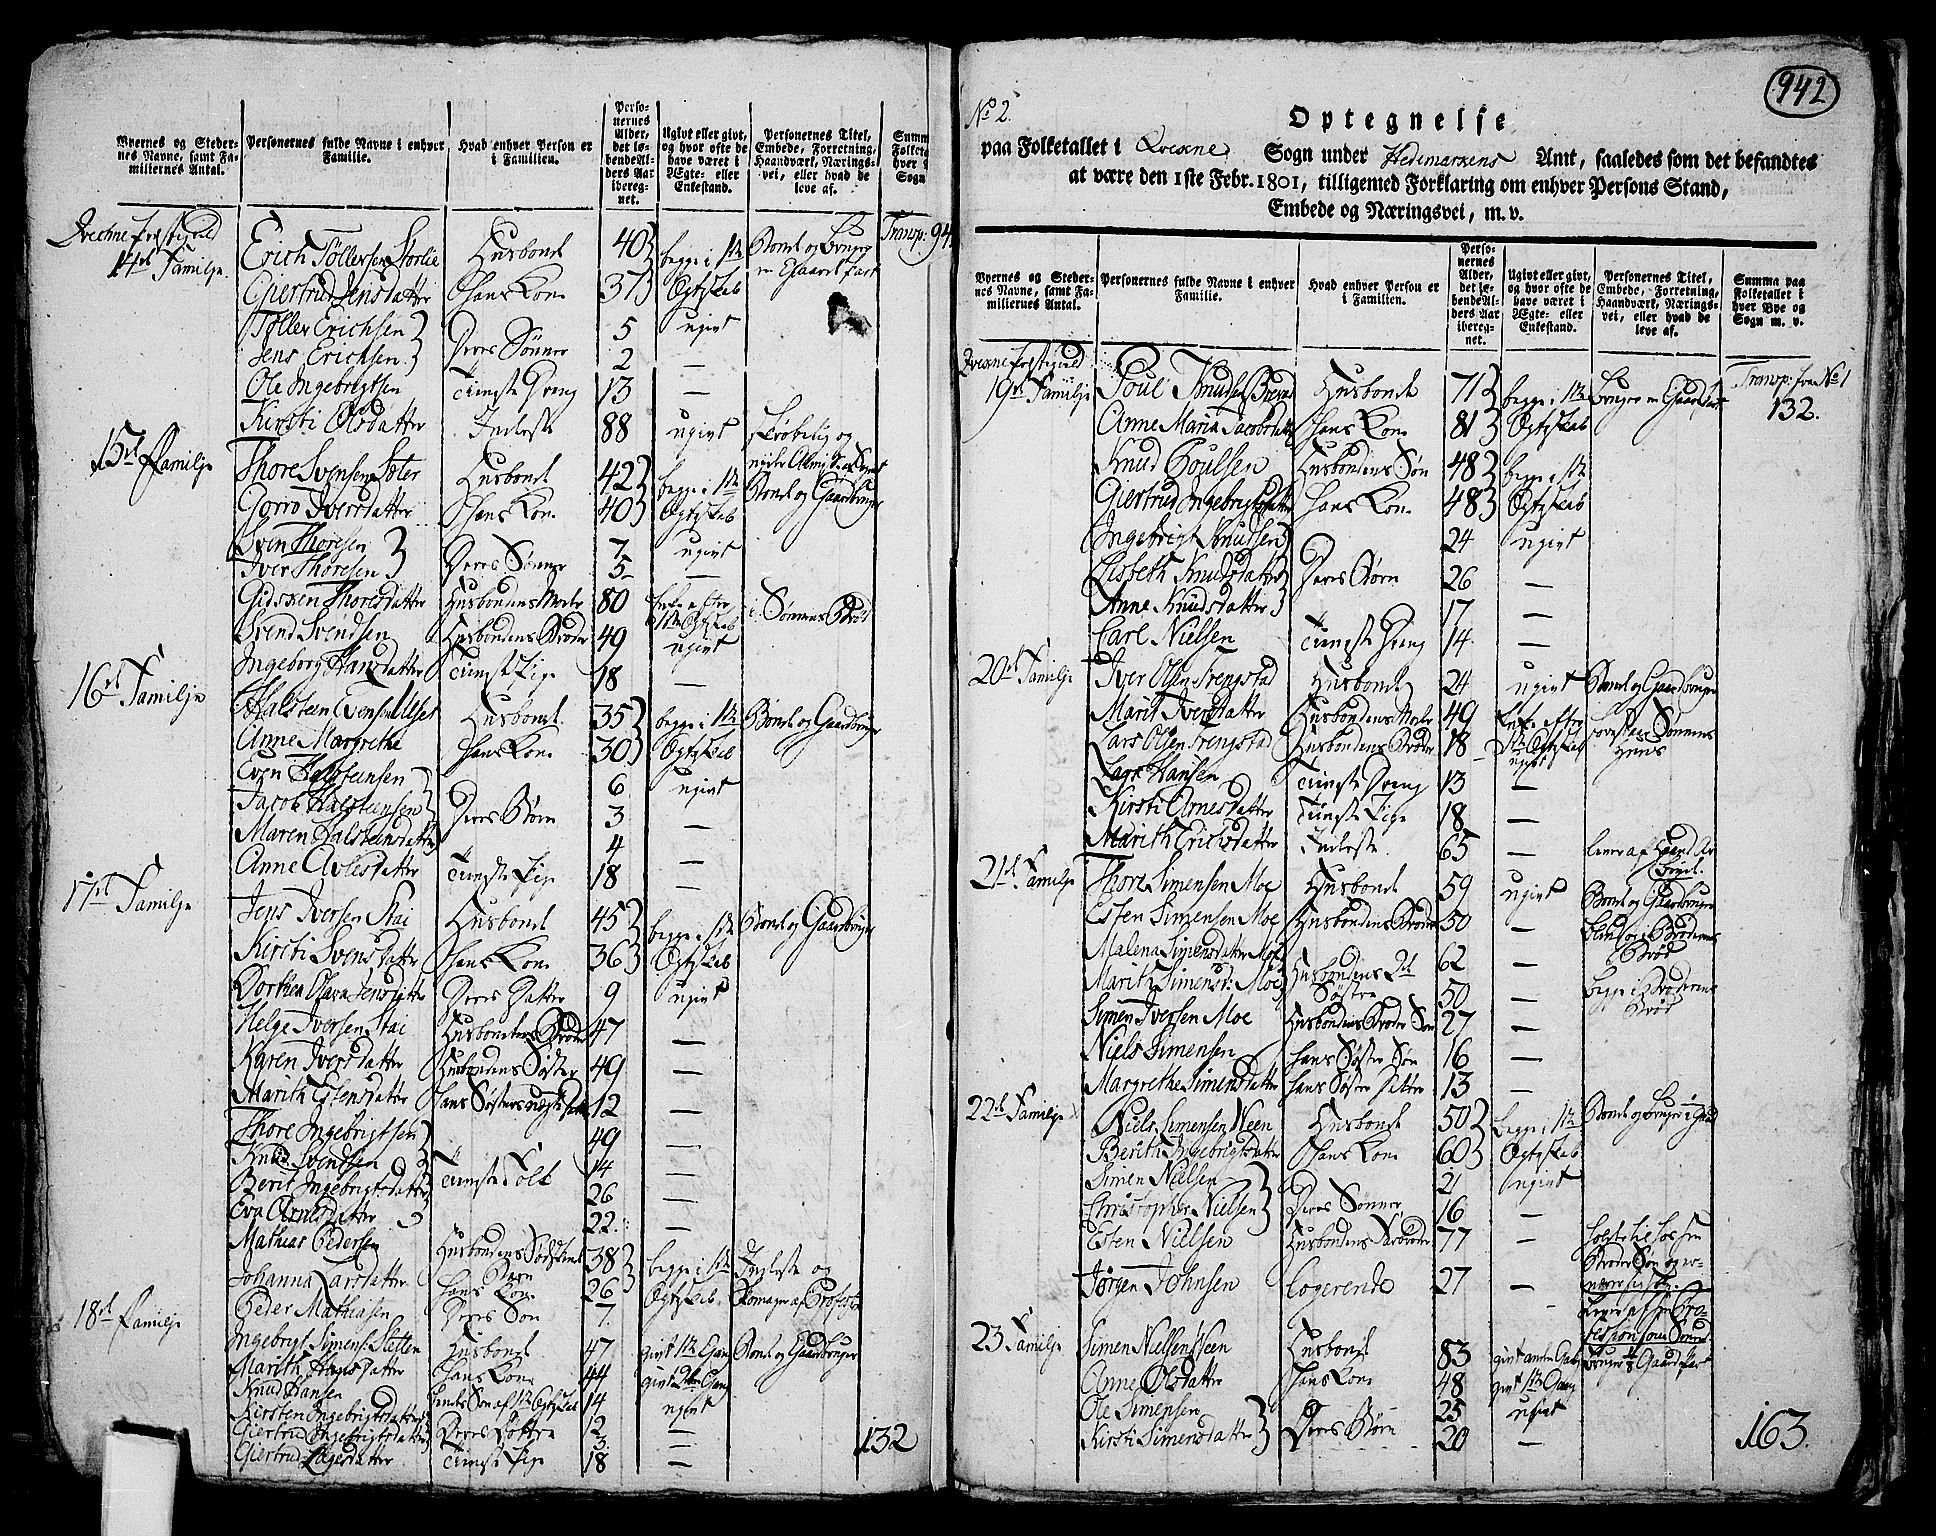 Byernes og Steder-
nes Navne, samt Fa-
miliernes Antal.
Personernes fulde Navne i enhver
Familie.
Hvad enhver Person er
i Familien.
Perso-
nernes
Alder,
det lø-
bende Al-
ders Aar
ibereg-
net.
Ugivt eller givt,
og hvor ofte de
have været i
Ægte- eller
Enkestand.
Personernes Titel,
Embede, Forretning,
Haandværk, Nærings-
vei, eller hvad de
leve af.
Qvechne Præstegield
14de Familje.
Erich Tøllefsen Storlie Husbond 40 begge i 1te Bonde og bruger Transp: 94
Giertrud Jensdatter Hans Kone 37 Egteskab
Tøller Erichsen 5 ugivt
Jens Erichsen Deres Sønner 2 —
Ole Ingebrigtsen Tieneste Dreng 13 —
Kirsti Olsdatter Inderste 88 ugivt skrøbelig og
15de Familje
Thore Svensen Sæter Husbond 42 begge i 1te Bonde og Gaardbruger
Gorro Iversdatter Hans Kone 40 Egteskab
Sven Thoresen 7 ugivt
Iver Thoresen Deres Sønner 5 —
Gidsken Thoresdatter Husbondens Moder 80 Enke efter 1te Egteskab i Sønnens Brød
Svend Svendsen Husbondens Broder 49 ugivt
Ingeborg Hansdatter Tieneste Pige 18 —
16de Familje
Halsteen Evensen Useth Husbond 35 begge i 1te Bonde og Gaardbruger
Anne Margrethe Hans Kone 30 Egteskab
Even Halsteensen 6 ugivt
Jacob Halsteensen Deres Børn 3 —
Maren Halsteensdatter 4 —
Anne Avlesdatter Tieneste Pige 18 —
17de Familje
Jens Iversen Stai Husbond 45 begge i 1te Bonde og Gaardbruger
Kirsti Svensdatter Hans Kone 36 Egteskab
Dorthea Olava Jensdatter Deres Datter 9 ugivt
Helge Iversen Stai Husbondens Broder 47 —
Karen Iversdatter Husbondens Søster 49 —
Marith Estensdatter Hans Søsters uægte Datter 12 —
Thore Ingebrigtsen 49 —
Knud Svendsen Tieneste Folk 14 —
Berit Ingebrigtsdatter 26 —
Eva Arnesdatter 22 —
Mathias Pedersen 38 begge i 1te Inderste og
Johanna Larsdatter Hans Kone 26 Egteskab
Peder Mathiasen Deres Søn 7.
18de Familje
Ingebrigt Simens: Stetten Husbond 47 givt 1te Gang Bonde og Gaardbruger
Marith Hansdatter Hans Kone 44 givt 2den Gang
Knud Hansen Hendes Søn af 1te Egteskab 14 ugivt
Kirsten Ingebrigtsdatter 12 —
Giertrud Ingebrigtsdatter Deres Døttre 3 —
Giertrud Lagesdatter Tieneste Pige 18 —
132
942
No 2.
Optegnelse
paa Folketallet i Qvekne Sogn under Hedemarkens Amt, saaledes som det befandtes
at være den 1ste Febr. 1801, tilligemed Forklaring om enhver Persons Stand,
Embede og Næringsvei, m. v.
Byernes og Steder-
nes Navne, samt Fa-
miliernes Antal.
Personernes fulde Navne i enhver
Familie.
Hvad enhver Person er
i Familien.
Perso-
nernes
Alder,
det lø-
bende Al-
ders Aar
ibereg-
net.
Ugivt eller givt,
og hvor ofte de
have været i
Ægte- eller
Enkestand.
Personernes Titel,
Embede, Forretning,
Haandværk, Nærings-
vei, eller hvad de
leve af.
Summa paa
Folketallet i
hver Bye og
Sogn m. v.
Qvekne Præstegield
19de Familje
Poul Knudsen Husbond 71 begge i 1te bruger en Gaardpart Transp: fra No 1
Anne Maria Jacobsdatter Hans Kone 81 Egteskab 132.
Knud Poulsen Husbondens Søn 48 begge i 1te
Giertrud Ingebrigtsdatter Hans Kone 48 Egteskab
Ingebrigt Knudsen 24 ugivt
Lisbeth Knudsdatter Deres Børn 26 —
Anne Knudsdatter 17 —
Carl Nielsen Tieneste Dreng 14 —
20de Familje
Iver Olsen Frengstad Husbond 24 ugivt Bonde og Gaardbruger
Marit Iversdatter Husbondens Moder 49 Enke efter Sønnens
Lars Olsen Frengstad Husbondens Broder 18 1te Egteskab ugivt
Lars Hansen Tieneste Dreng 13 —
Kirsti Arnesdatter Tieneste Pige 18 —
Marith Erichsdatter Inderste 65 — lever af Haand Ar-
beyde
21de Familje
Thore Simensen Moe Husbond 59 ugivt Bonde og Gaardbruger
Esten Simensen Moe Husbondens Broder 50 — blind og i Broderens
Brød
Malena Simensdatter Moe 62 —
Marith Simensd: Moe Husbondens 2de Søstre 50 — begge i Broderens
Brød
Simen Iversen Moe Husbondens Broder Søn 27 —
Niels Simensen Hans Søster Søn 16 —
Margrethe Simensdatter Hans Søster Datter 13 —
22de Familje
Niels Simensen Neen Husbond 50 begge i 1te
Berith Ingebrigtsdatter Hans Kone 60 Egteskab
Simen Nielsen 21 ugivt
Christopher Nielsen Deres Sønner 16 —
Esten Nielsen Husbondens Farbroder 77
Jørgen Johnsen Logerende 27 —
23 Familje
Simen Nielsen Neen Husbond 83 givt anden Gang bruger 1/8 Gaardpart
Anne Olsdatter Hans Kone 48 givt 1te Gang
Ole Simensen 25 ugivt
Kirsti Simensdatter Deres Børn 20 —
163.